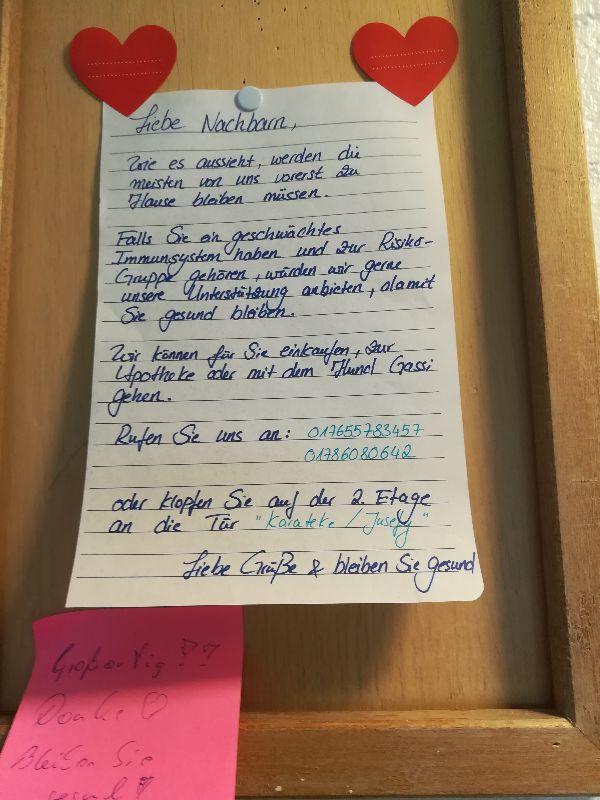 Liebe Nachbarn,
Wie es aussieht, werden die
meisten von uns vorerst zu
Hause bleiben müssen.
Falls Sie ein geschwächtes
Immunsystem haben und zur Risiko-
Gruppe gehören, würden wir gerne
unsere Unterstützung anbieten, damit
Sie gesund bleiben.
Wir können für Sie einkaufen, zur
Apotheke oder mit dem Hund Gassi
gehen.
Rufen Sie uns an: 017655783457
01786080642
oder klopfen Sie auf der 2. Etage
an die Tür "Karateke / Juseffy"
Liebe Grüße & bleiben Sie gesund
Großartig !!
Danke ♡
Bleiben Sie
gesund !